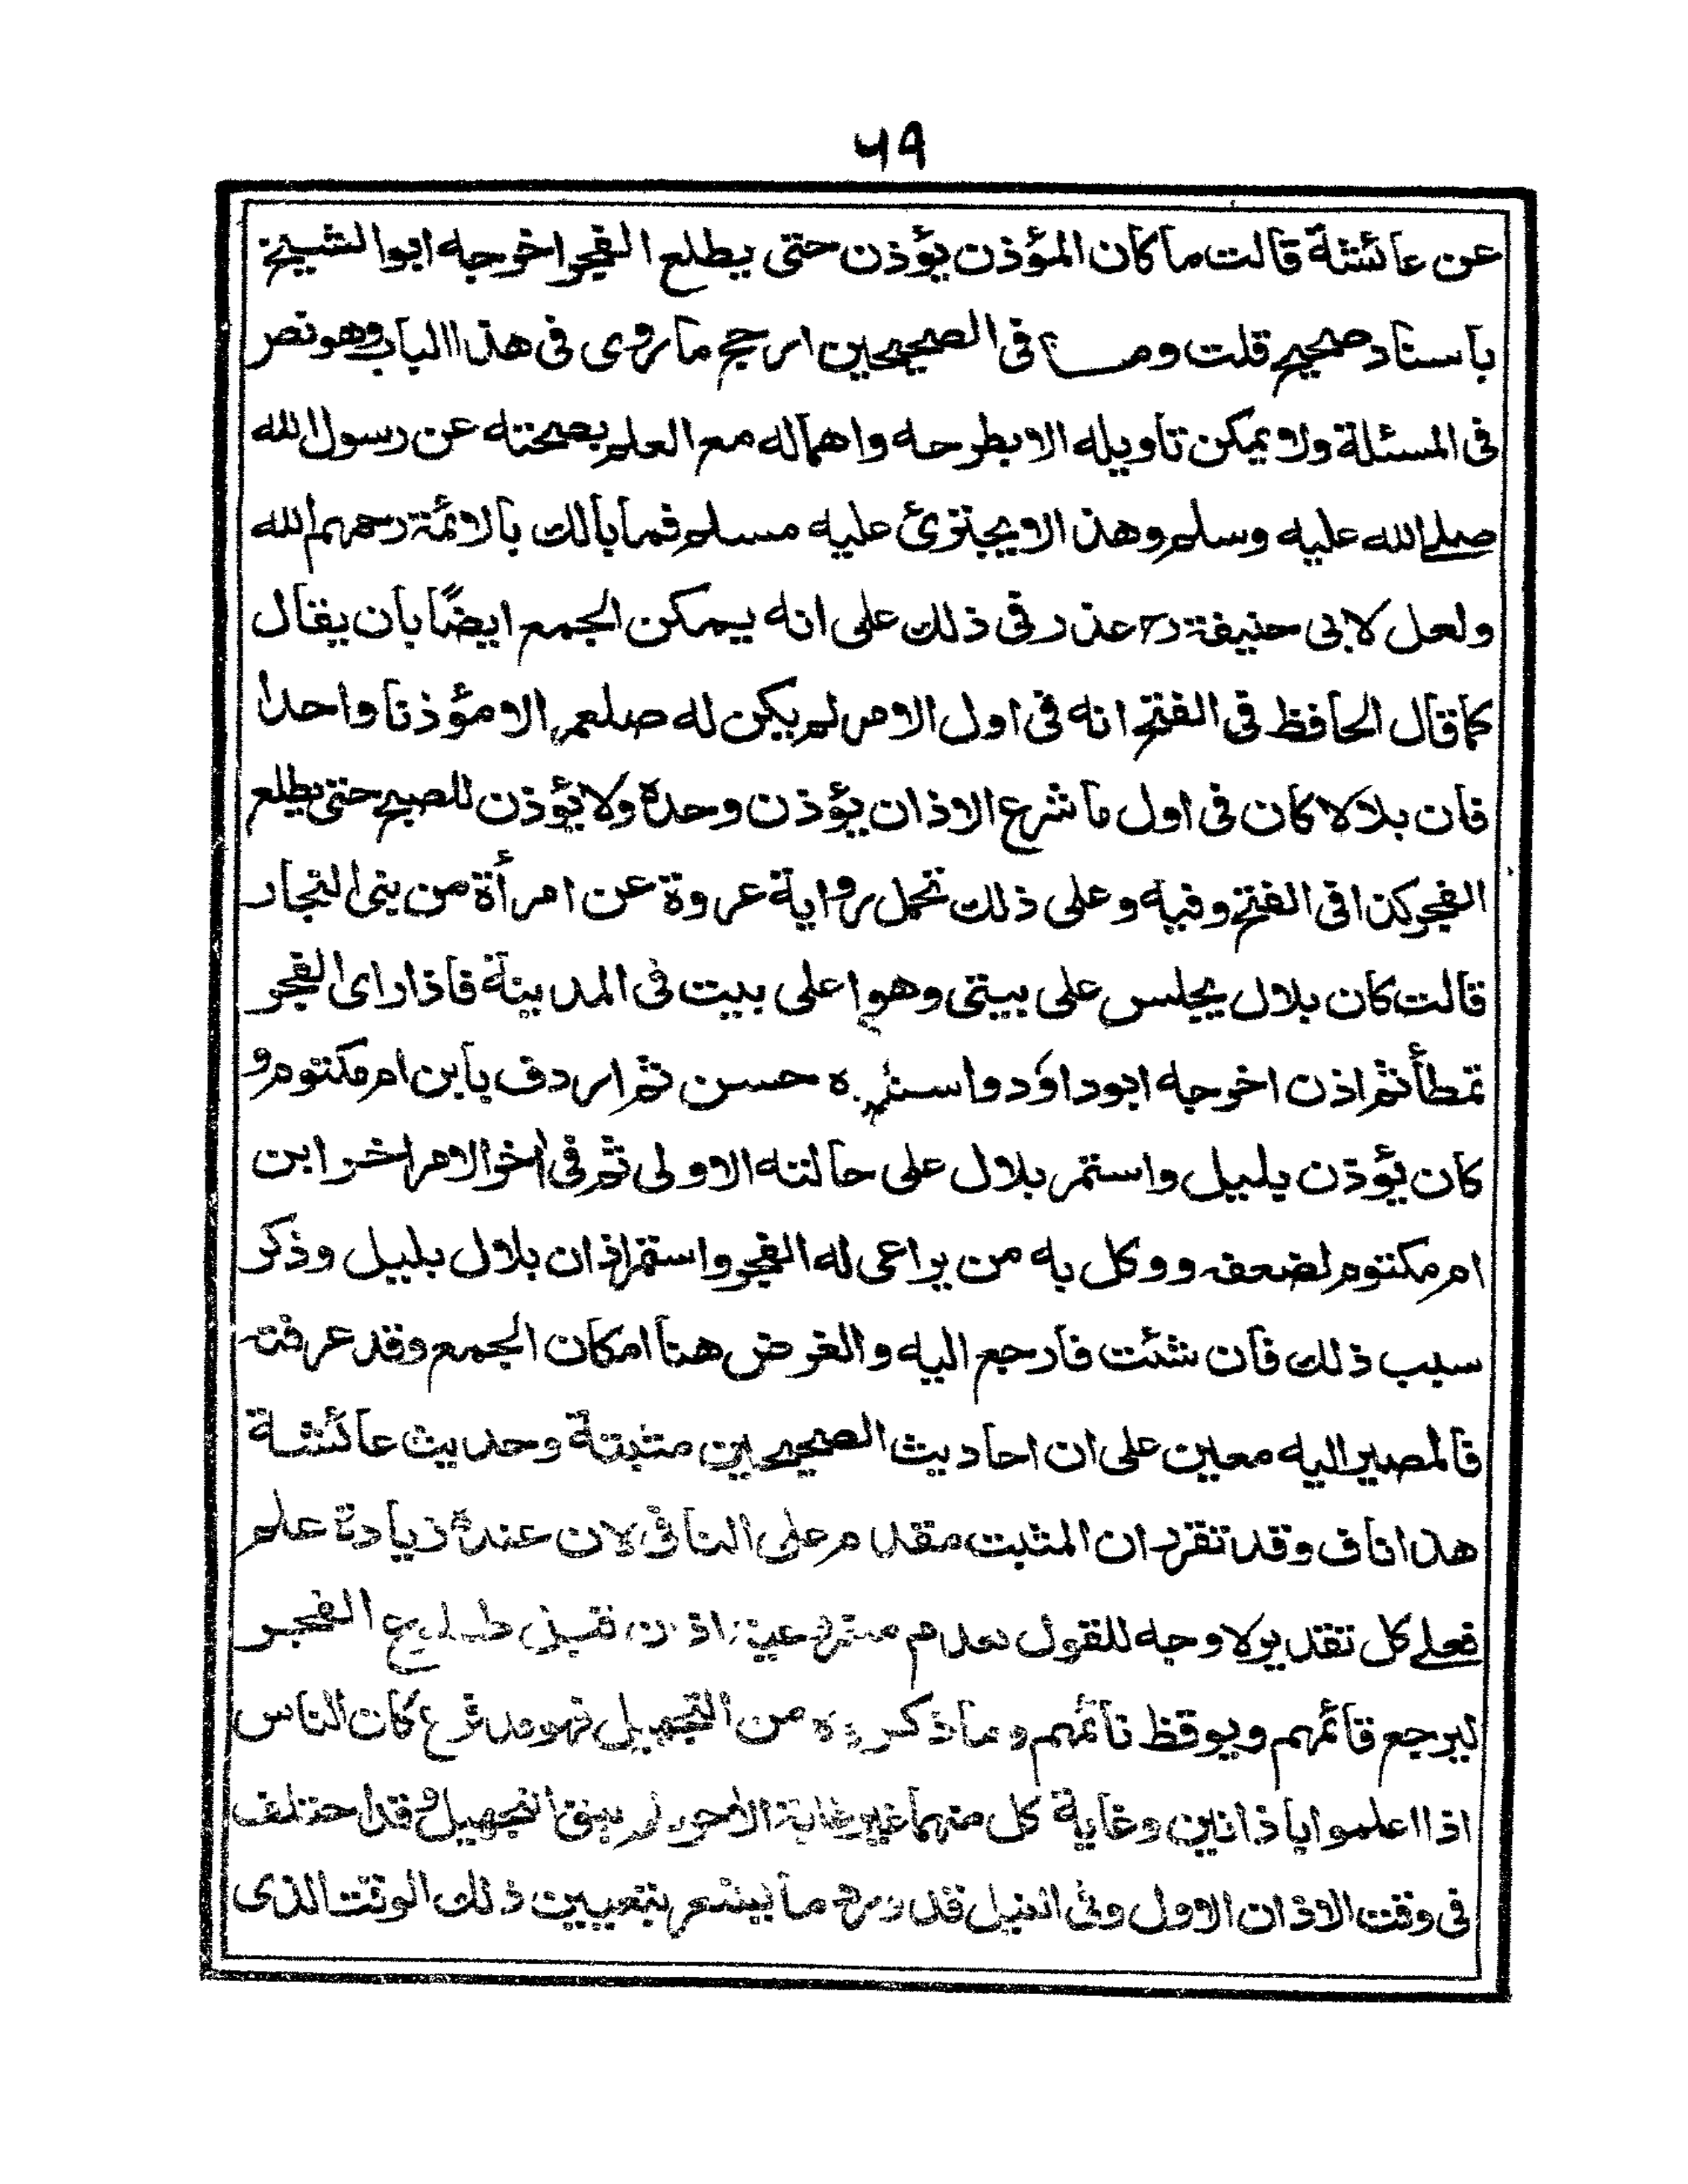 ٤٩
عن عائشة قالت ما كان المؤذن يؤذن حتى يطلع الفجر اخرجه ابوالشيخ
باسناد صحيح قلت وما فى الصحيحين ارجح ما روى فى هذا الباب وهو نص
فى المسئلة ولا يمكن تاويله الا بطرحه واهماله مع العلم بصحته عن رسول الله
صلے الله عليه وسلم وهذا لا يجتزئ عليه مسلم فما بالك بالائمة رحمهم الله
ولعل لابى حنيفة رح عذر فى ذلك على انه يمكن الجمع ايضًا بان يقال
كما قال الحافظ فى الفتح انه فى اول الامر لم يكن له صلعم الا مؤذنا واحدا
فان بلالا كان فى اول ما شرع الاذان يؤذن وحده ولا يؤذن للصبح حتى يطلع
الفجر كذا فى الفتح وفيه وعلى ذلك تحمل رواية عروة عن امرأة من بنى النجار
قالت كان بلال يجلس على بيتى وهو اعلى بيت فى المدينة فاذا راى الفجر
تمطأ ثم اذن اخرجه ابوداؤد واسناده حسن ثم اردف بابن ام مكتوم و
كان يؤذن بليل واستمر بلال على حالته الاولى ثم فى اخر الامر اخر ابن
ام مكتوم لضعفه ووكل به من يراعى له الفجر واستمر اذان بلال بليل وذكر
سبب ذلك فان شئت فارجع اليه والغرض هنا امكان الجمع وقد عرفته
فالمصير اليه معين على ان احاديث الصحيحين مثبتة وحديث عائشة
هذا ناف وقد تقرر ان المثبت مقدم على النافى لان عنده زيادة علم
فعلے كل تقدير لا وجه للقول بعدم مشروعية اذان قبل طلوع الفجر
ليرجع قائمهم ويوقظ نائمهم وما ذكره من التجهيل فهو مدفوع كان الناس
اذا اعلموا باذانين وغاية كل منهما غير غاية الاخر لم يبق التجهيل وقد اختلف
فى وقت الاذان الاول وفى النيل قد ورد ما يشعر بتعيين ذلك الوقت الذى